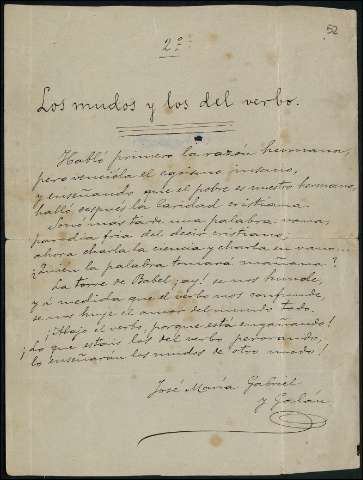 52
2º
Los mudos y los del verbo.
Habló primero la razón hermana,
pero vencióla el egoismo insano,
y enseñando que el pobre es nuestro hermano,
habló después la caridad cristiana.
Sonó más tarde una palabra vana,
parodia fria del decir cristiano;
ahora charla la ciencia y charla en vano...
¿Quién la palabra tomará mañana?
La torre de Babel ¡ay! se nos hunde,
y á medida que el verbo nos confunde,
se nos huye el amor del mundo todo.
¡Abajo el verbo, porque está engañando!
¡Lo que estais los del verbo perorando,
lo enseñarán los mudos de otro modo!
José María Gabriel
y Galán